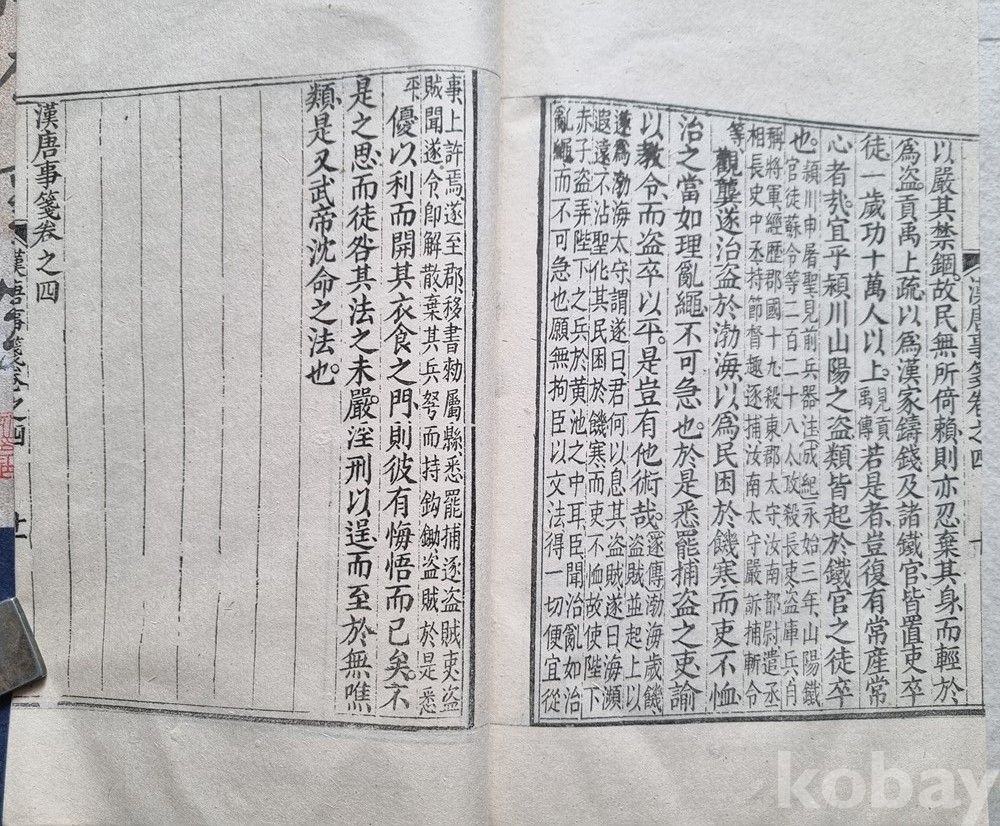 以嚴其禁錮故民無所倚賴則亦忍棄其身而輕於
為盜貢禹上疏以為漢家鑄錢及諸鐵官皆置吏卒
徒一歲功十萬人以上見貢禹傳若是者豈復有常產常
心者哉宜乎潁川山陽之盜類皆起於鐵官之徒卒
也潁川申屠聖見前兵器注成紀永始三年山陽鐵
官徒蘇令等二百二十八人攻殺長吏盜庫兵自
稱將軍經歷郡國十九殺東郡太守汝南都尉遣丞
相長史中丞持節督趣逐捕汝南太守嚴訢捕斬令
等觀龔遂治盜於渤海以為民困於饑寒而吏不恤
治之當如理亂繩不可急也於是悉罷捕盜之吏諭
以教令而盜卒以平是豈有他術哉遂傳渤海歲饑
盜賊並起上以
遂為渤海太守謂遂曰君何以息其盜賊遂曰海瀕
遐遠不沾聖化其民困於饑寒而吏不恤故使陛下
赤子盜弄陛下之兵於黃池之中耳臣聞治亂如治
亂繩而不可急也願無拘臣以文法得一切便宜從
事上許焉遂至郡移書勑屬縣悉罷捕逐盜賊吏盜
賊聞遂令即解散棄其兵弩而持鈎鋤盜賊於是悉
平優以利而開其衣食之門則彼有悔悟而已矣不
是之思而徒咎其法之未嚴淫刑以逞而至於無噍
類是又武帝沈命之法也
漢唐事箋卷之四
漢唐事箋卷之四 十
漢唐事箋卷之四 十一
kobay